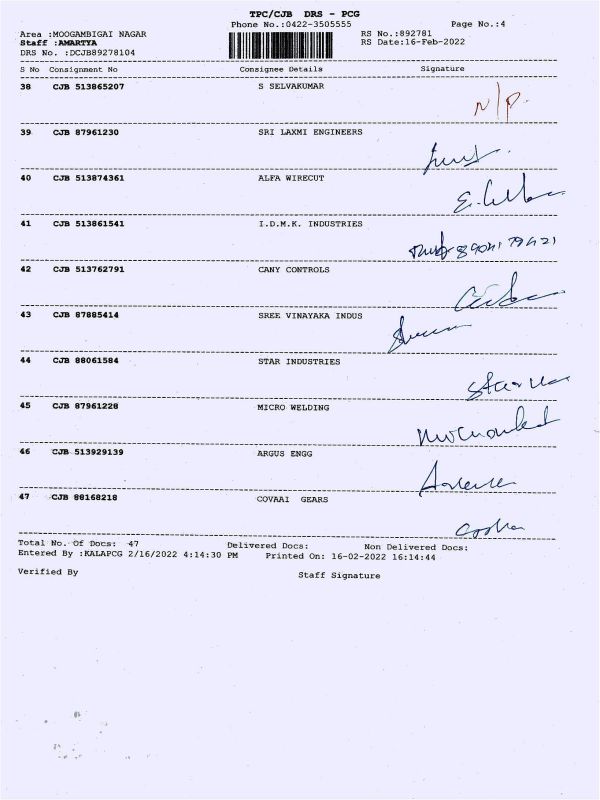 TPC/CJB DRS - PCG
Phone No.:0422-3505555 Page No.:4
Area :MOOGAMBIGAI NAGAR RS No.:892781
Staff :AMARTYA RS Date:16-Feb-2022
DRS No. :DCJB89278104
S No Consignment No Consignee Details Signature
38 CJB 513865207 S SELVAKUMAR
N/P.
39 CJB 87961230 SRI LAXMI ENGINEERS
40 CJB 513874361 ALFA WIRECUT
41 CJB 513861541 I.D.M.K. INDUSTRIES
42 CJB 513762791 CANY CONTROLS
43 CJB 87885414 SREE VINAYAKA INDUS
44 CJB 88061584 STAR INDUSTRIES
45 CJB 87961228 MICRO WELDING
46 CJB 513929139 ARGUS ENGG
47 CJB 88168218 COVAAI GEARS
Total No. Of Docs: 47 Delivered Docs: Non Delivered Docs:
Entered By :KALAPCG 2/16/2022 4:14:30 PM Printed On: 16-02-2022 16:14:44
Verified By Staff Signature